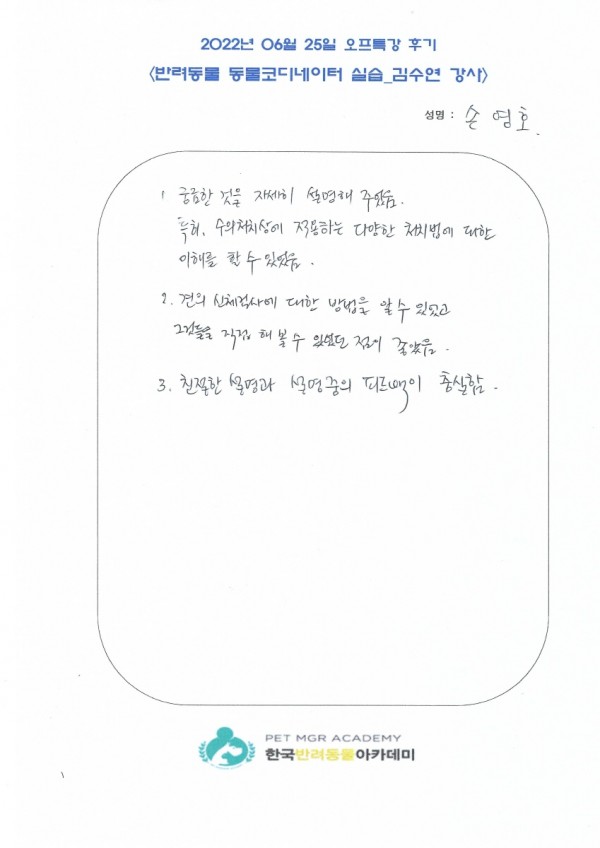 2022년 06월 25일 오프특강 후기
<반려동물 동물코디네이터 실습_김수연 강사>
성명 : 손영호.
1 궁금한 것을 자세히 설명해 주었음.
특히, 수의처치상에 적용하는 다양한 처치법에 대한
이해를 할 수 있었음.
2. 견의 신체검사에 대한 방법을 알 수 있었고
그것들을 직접 해 볼 수 있었던 점이 좋았음.
3. 친절한 설명과 설명중의 피드백이 충실함.
PET MGR ACADEMY
한국반려동물아카데미